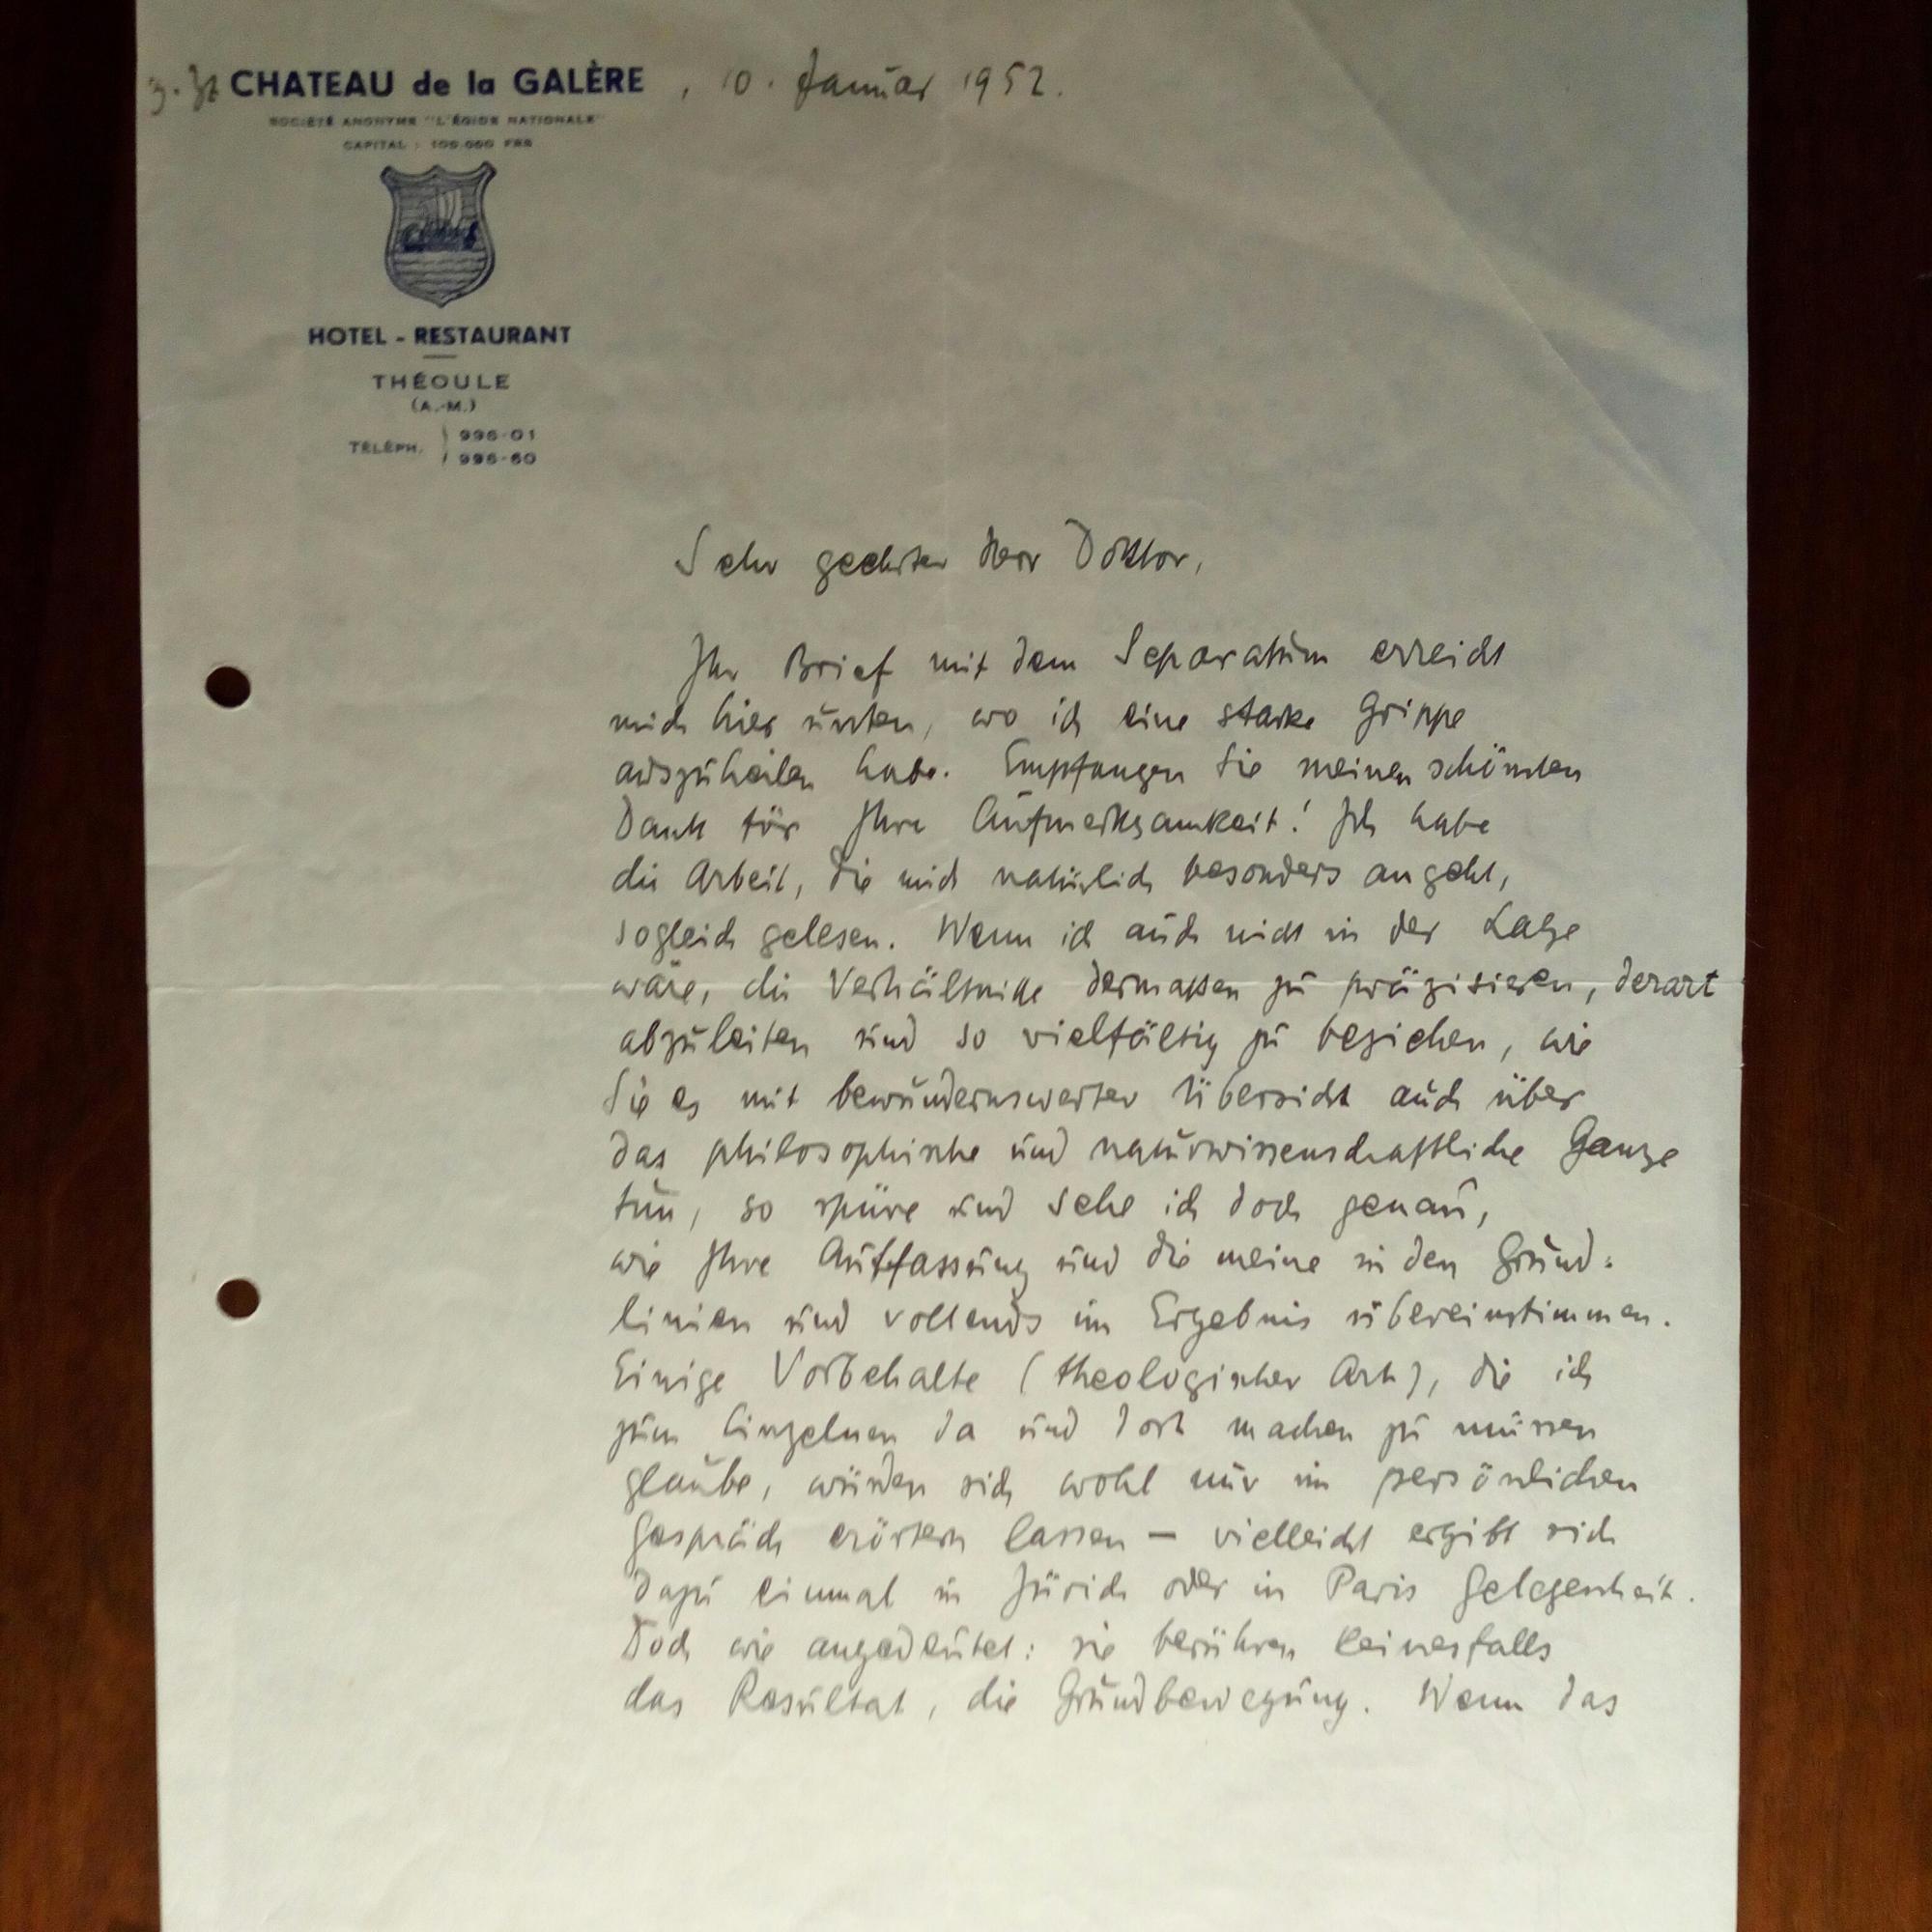 z. Zt. CHATEAU de la GALÈRE, 10. Januar 1952.
SOCIÉTÉ ANONYME "L'ÉGIDE NATIONALE"
CAPITAL : 100.000 FRS
HOTEL - RESTAURANT
THÉOULE
(A.-M.)
TÉLÉPH. 996-01
996-60
Sehr geehrter Herr Doktor,
Ihr Brief mit dem Separatum erreicht
mich hier unten, wo ich eine starke Grippe
auszuheilen habe. Empfangen Sie meinen schönsten
Dank für Ihre Aufmerksamkeit! Ich habe
die Arbeit, die mich natürlich besonders angeht,
sogleich gelesen. Wenn ich auch nicht in der Lage
wäre, die Verhältnisse dermassen zu präzisieren, derart
abzuleiten und so vielfältig zu beziehen, wie
Sie es mit bewundernswerter Übersicht auch über
das philosophische und naturwissenschaftliche Ganze
tun, so spüre und sehe ich doch genau,
wie Ihre Auffassung und die meine in den Grund-
linien und vollends im Ergebnis übereinstimmen.
Einige Vorbehalte (theologischer Art), die ich
zum Einzelnen da und dort machen zu müssen
glaube, würden sich wohl nur im persönlichen
Gespräch erörtern lassen — vielleicht ergibt sich
dazu einmal in Zürich oder in Paris Gelegenheit.
Doch wie angedeutet: sie berühren keinesfalls
das Resultat, die Grundbewegung. Wenn das